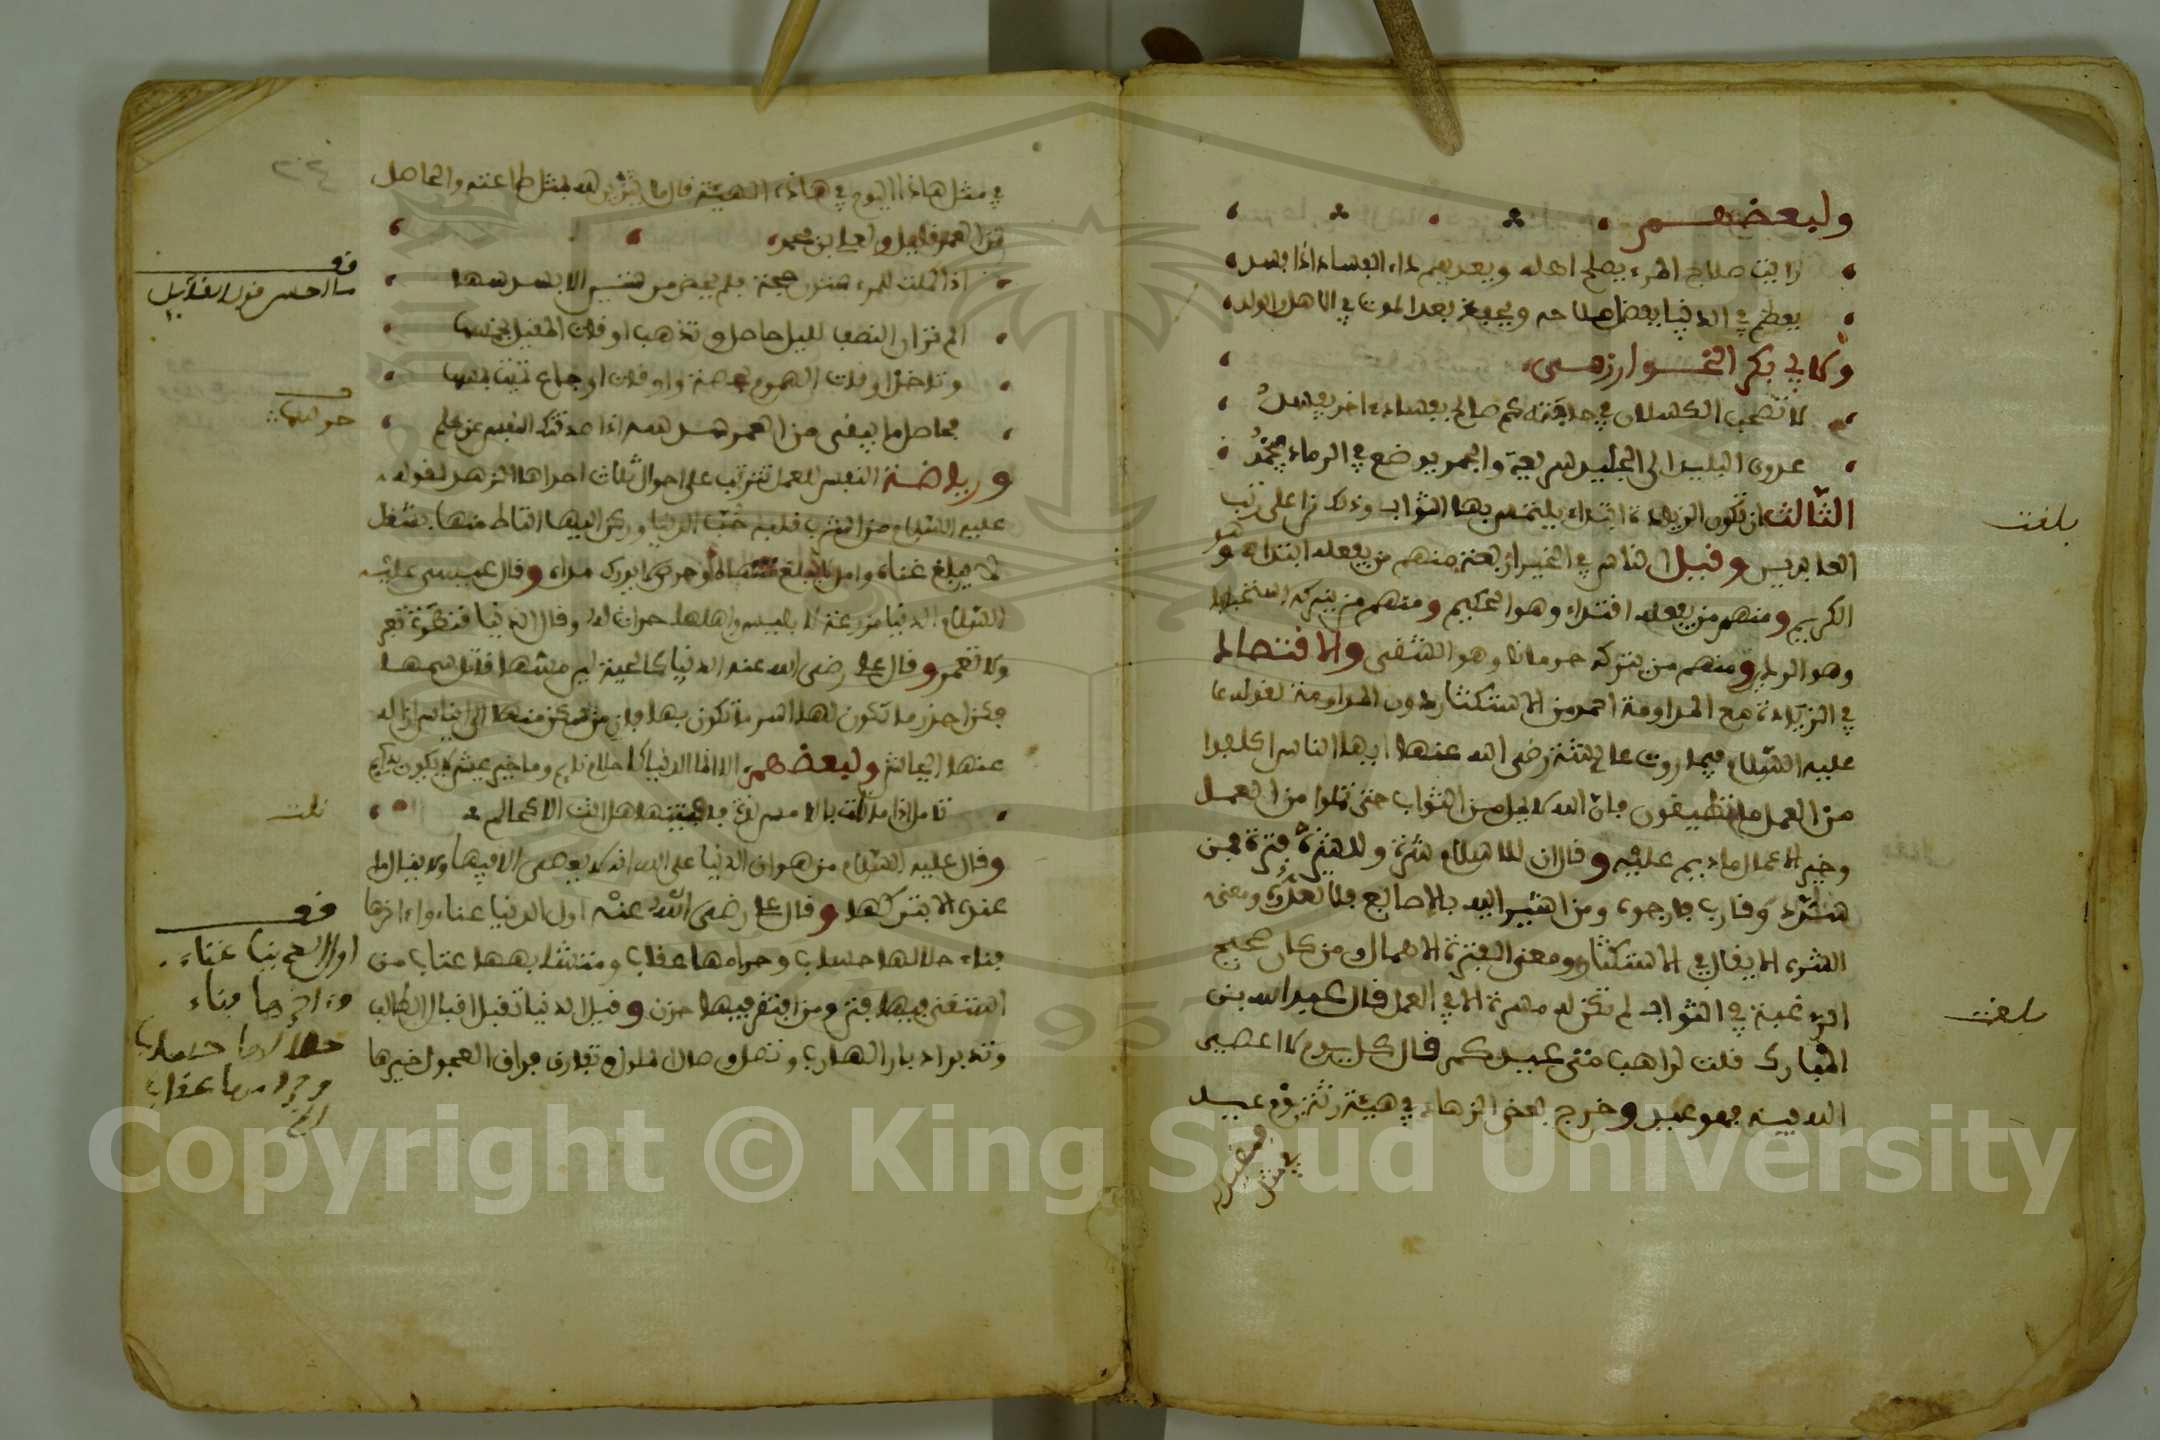 ولبعضهم
رايت صلاح المرء يصلح اهله ويعديهم داء الفساد اذا فسد
يعظم في الدنيا بفضل صلاحه ويحفظ بعد الموت في الاهل والولد
ولابي بكر الخوارزمي
لا تصحب الكسلان في حاجته كم صالح بفساد اخر يفسد
عدوى البليد الى الجليد سريعة والجمر يوضع في الرماد فيخمد
الثالث ان تكون الزيادة ابتداء يلتمس بها الثواب وذلك تزاعلى رتب
العابدين وقيل الناس في الخير اربعة منهم من يفعله ابتداء وهو
الكريم ومنهم من يفعله اقتداء وهو الحكيم ومنهم من يتركه استحبابا
وهو الردي ومنهم من يتركه حرمانا وهو الشقي والاقتصاد
في الزيادة مع المداومة احمد من الاستكثار بدون المداومة لقوله
عليه السلام فيما روت عائشة رضي الله عنها ايها الناس اكلفوا
من العمل ما تطيقون فان الله لا يمل من الثواب حتى تملوا من العمل
وخير الاعمال ما ديم عليه وقال ان للاسلام شرة وللشرة فترة فمن
سدد وقارب فارجوه ومن اشير اليه بالاصابع فلا تعدوه ومعنى
الشره الايغال في الاستكثار ومعنى الفترة الاهمال ومن كان صحيح
الرغبة في الثواب لم تكن له مسرة الا في العمل قال عبد الله بن
المبارك قلت لراهب متى عيدكم قال كل يوم لا اعصي
الله فيه فهو عيد وخرج بعض الزهاد في هيئة رثة يوم عيد
فقيل له
في مثل
بلغت
بلغت
في مثل هاذا اليوم في هاذه الهيئة فقال ما يتزين لله بمثل طاعته والحاصل
من العمر قليل ولعلي بن محمد
اذا كملت للمرء ستون حجة فلم يحض من ستين الا بسدسها
الم تر ان النصف لليل حاصل وتذهب اوقات المقيل بخمسها
وتاخذ اوقات الهموم بحصة واوقات اوجاع تميت بمسها
فحاصل ما يبقى من العمر سدسه اذا صدقتك النفس عن علم
ورياضة النفس للعمل تترتب على احوال ثلاث احداها الزهد لقوله
عليه السلام من اشرب قلبه حب الدنيا وركن اليها التاط منها بشغل
لا يبلغ عناه وامل لا يبلغ منتهاه وحرص لا يدرك مداه وقال عيسى عليه
السلام الدنيا مزرعة لابليس واهلها حراث له وقال الدنيا قنطرة فعبر
ولا تعمر وقال علي رضي الله عنه الدنيا كالحية لين مسها قاتل سمها
فكن احذر ما تكون لها انس ما تكون بها فان من سكن منها الى ايناس ازاله
عنها ايحاش ولبعضهم الا انما الدنيا كاحلام نايم وما خير عيش لا يكون بدايم
تامل اذا ما نلت بالامس لذة فافنيتها هل انت الا كحالم
وقال عليه السلام من هوان الدنيا على الله انه لا يعصى الا فيها ولا ينال ما
عنده الا بتركها وقال علي رضي الله عنه اول الدنيا عناء واخرها
فناء حلالها حساب وحرامها عقاب ومتشابهها عتاب من
استغنى فيها فتن ومن افتقر فيها حزن وقيل الدنيا تقبل اقبال الطالب
وتدبر ادبار الهارب وتصل وصال الملول وتفارق فراق العجول خيرها
قف
ما احسن قول القايل
قف
قف
اول الدنيا عناء
واخرها فناء
حلالها حساب
وحرامها عقاب
الخ
Copyright © King Saud University
1957